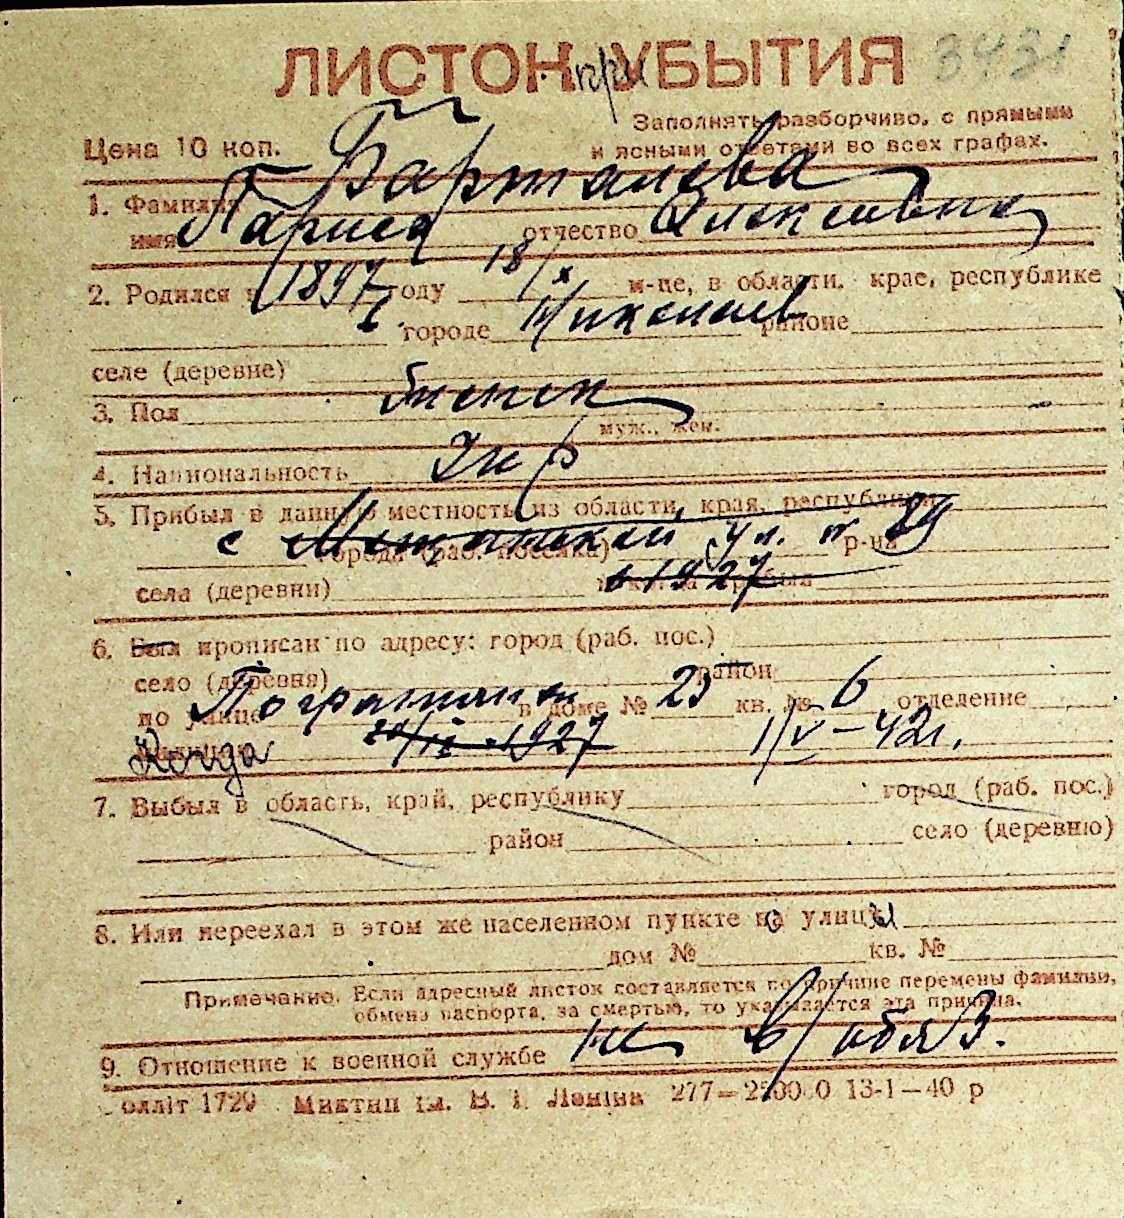 ЛИСТОК при УБЫТИЯ 3431
Заполнять разборчиво, с прямыми
Цена 10 коп. и ясными ответами во всех графах.
1. Фамилия Барталева
имя Лариса отчество Алексеевна
2. Родился в 1897 году 18/X м-це, в области, крае, республике
городе Николаев районе
селе (деревне)
3. Пол женск
муж., жен.
4. Национальность Укр
5. Прибыл в данную местность из области, края, республики
с ул. № 89
города (раб. поселка) р-на
села (деревни) в 1927
6. Был прописан по адресу: город (раб. пос.)
село (деревня) район
по улице Пограничн в доме № 25 кв. № 6 отделение
Когда 1927 1/V – 42г.
7. Выбыл в область, край, республику город (раб. пос.)
район село (деревню)
8. Или переехал в этом же населенном пункте со улицы
дом № кв. №
Примечание. Если адресный листок составляется по причине перемены фамилии,
обмена паспорта, за смертью, то указывается эта причина.
9. Отношение к военной службе не в/обяз.
олліт 1729 Миктип ім. В. І. Леніна 277— 13-1—40 р